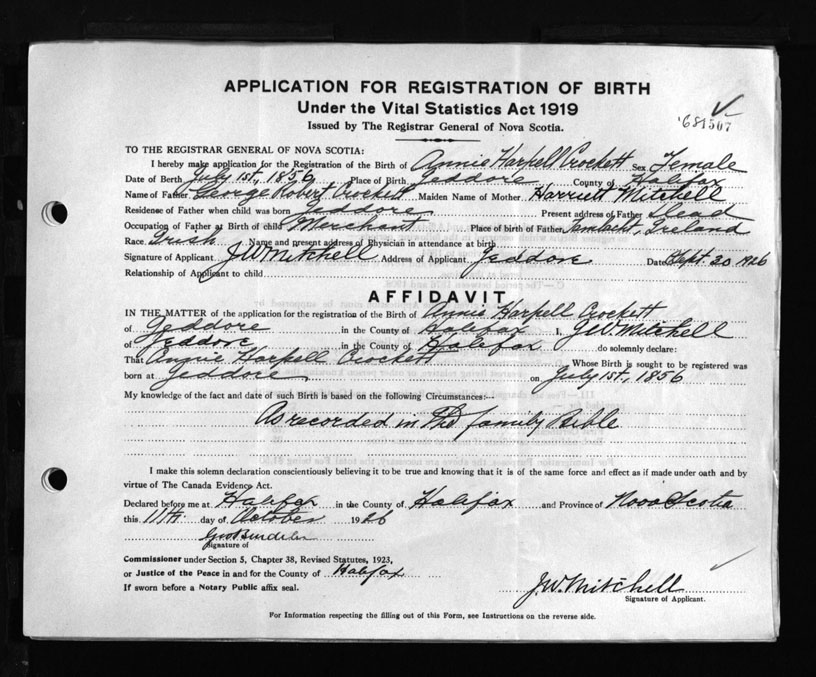 APPLICATION FOR REGISTRATION OF BIRTH
Under the Vital Statistics Act 1919
Issued by The Registrar General of Nova Scotia.
681507
TO THE REGISTRAR GENERAL OF NOVA SCOTIA:
I hereby make application for the Registration of the Birth of Annie Harpell Crockett Sex Female
Date of Birth July 1st, 1856 Place of Birth Jeddore County of Halifax
Name of Father George Robert Crockett Maiden Name of Mother Harriett Mitchell
Residense of Father when child was born Jeddore Present address of Father Dead
Occupation of Father at Birth of child Merchant Place of birth of Father Ireland
Race Irish Name and present address of Physician in attendance at birth
Signature of Applicant J.W. Mitchell Address of Applicant Jeddore Date Sept. 20 1926
Relationship of Applicant to child
AFFIDAVIT
IN THE MATTER of the application for the registration of the Birth of Annie Harpell Crockett
of Jeddore in the County of Halifax I, J.W. Mitchell
of Jeddore in the County of Halifax do solemnly declare:
That Annie Harpell Crockett Whose Birth is sought to be registered was
born at Jeddore on July 1st, 1856
My knowledge of the fact and date of such Birth is based on the following Circumstances:--
As recorded in the family Bible
I make this solemn declaration conscientiously believing it to be true and knowing that it is of the same force and effect as if made under oath and by
virtue of The Canada Evidence Act.
Declared before me at Halifax in the County of Halifax and Province of Nova Scotia
this 11th day of October 1926
Signature of
Commissioner under Section 5, Chapter 38, Revised Statutes, 1923,
or Justice of the Peace in and for the County of Halifax
If sworn before a Notary Public affix seal.
J.W. Mitchell
Signature of Applicant.
For Information respecting the filling out of this Form, see Instructions on the reverse side.